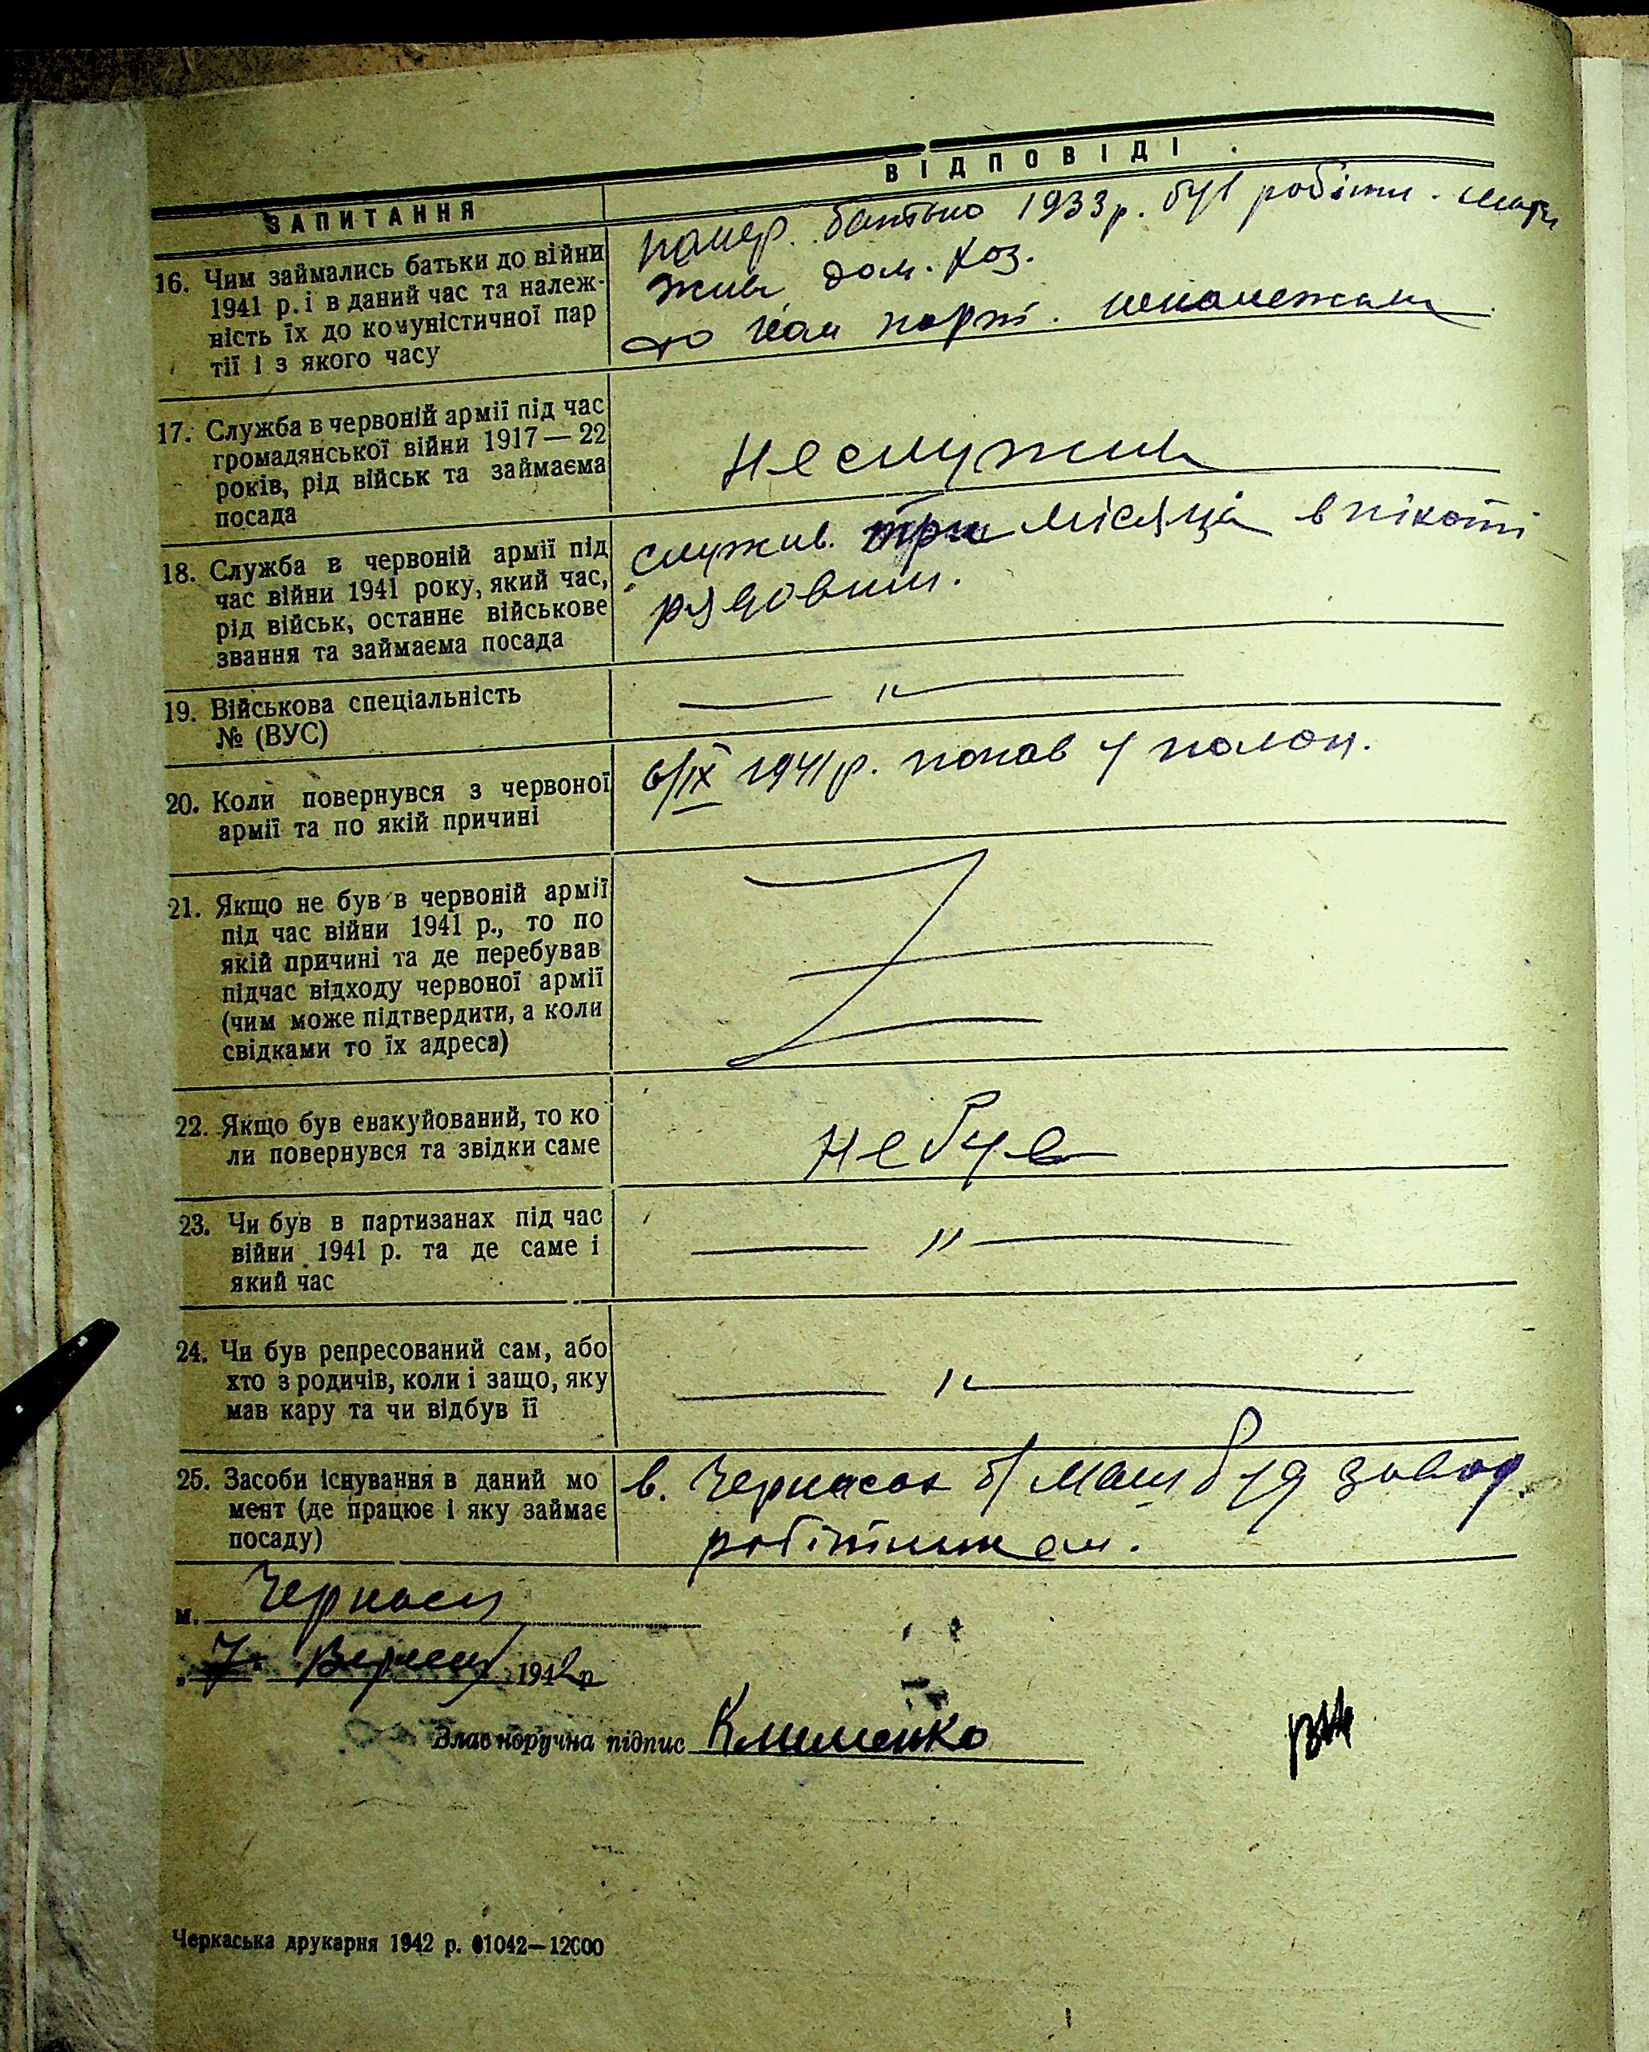 ВІДПОВІДІ
ЗАПИТАННЯ
16. Чим займались батьки до війни
1941 р. і в даний час та належ-
ність їх до комуністичної пар
тії і з якого часу
помер. батько 1933 р. був робітн. мати
жив дом. хоз.
до ком парті. неналежали
17. Служба в червоній армії під час
громадянської війни 1917 — 22
років, рід військ та займаєма
посада
Не служив
18. Служба в червоній армії під
час війни 1941 року, який час,
рід військ, останнє військове
звання та займаєма посада
служив. три місяця в піхоті
рядовим.
19. Військова спеціальність
№ (ВУС)
— " —
20. Коли повернувся з червоної
армії та по якій причині
6/IX 1941 р. попав у полон.
21. Якщо не був в червоній армії
під час війни 1941 р., то по
якій причині та де перебував
підчас відходу червоної армії
(чим може підтвердити, а коли
свідками то їх адреса)
22. Якщо був евакуйований, то ко
ли повернувся та звідки саме
Не був
23. Чи був в партизанах під час
війни 1941 р. та де саме і
який час
— " —
24. Чи був репресований сам, або
хто з родичів, коли і защо, яку
мав кару та чи відбув її
— " —
25. Засоби існування в даний мо
мент (де працює і яку займає
посаду)
в. Черкасах б/ Маш буд завод.
робітником.
м. Черкаси
„ 7. Вересня 1942 р
Власноручна підпис Клименко
Черкаська друкарня 1942 р. 01042—12000